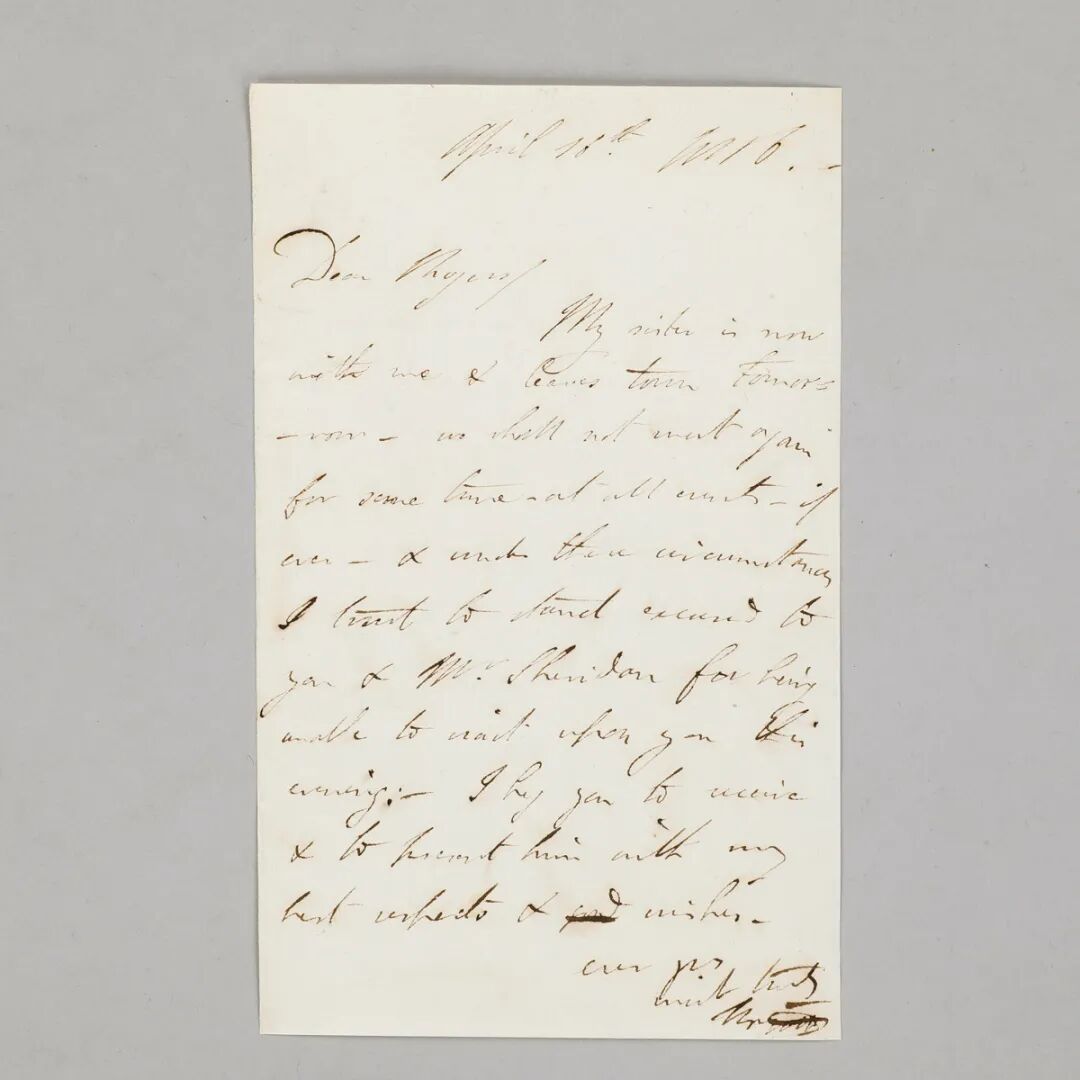 April 16th 1816. -
Dear Rogers/
My sister is now
with me & leaves town tomor=
-row - we shall not meet again
for some time - at all events - if
ever - & under these circumstances
I trust to stand excused to
you & Mr. Sheridan for being
unable to wait upon you this
evening: - I beg you to receive
& to present him with my
best respects & wishes -
ever yrs
most truly